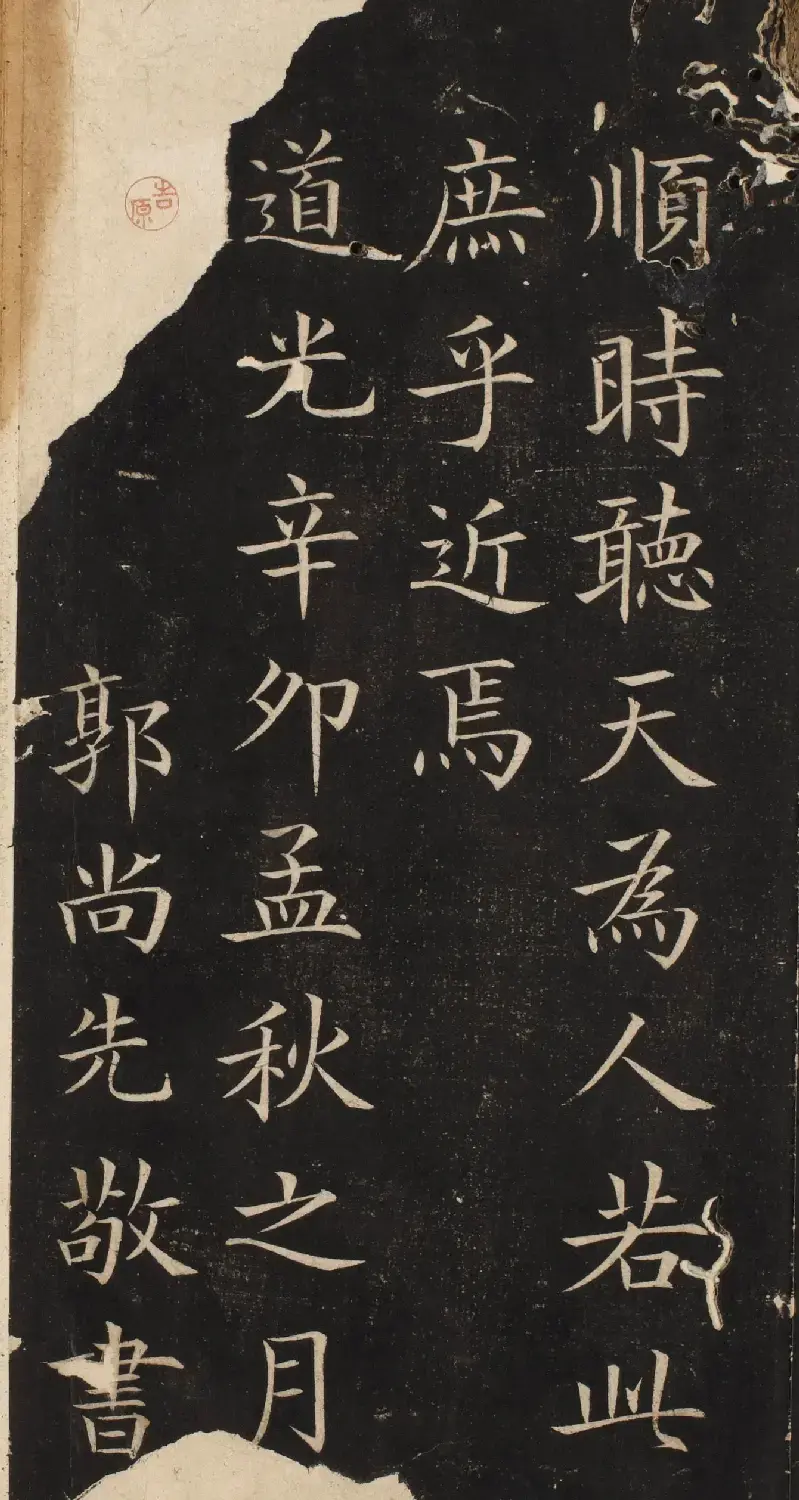 順時聽天為人若此
庶乎近焉
道光辛卯孟秋之月
郭尚先敬書
吉原